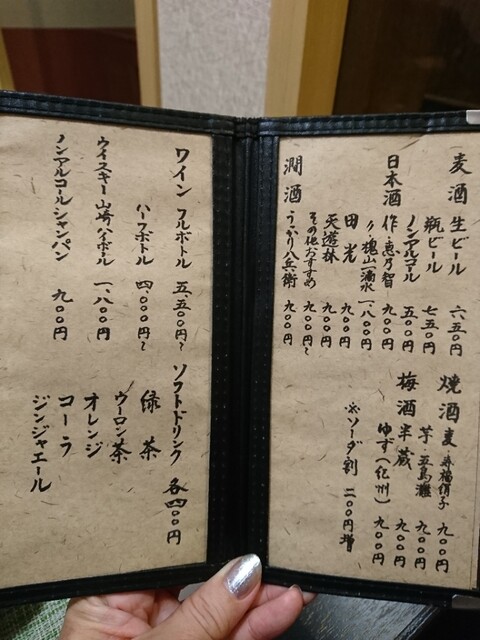 麦酒 生ビール 六五〇円
瓶ビール 七五〇円
ノンアルコール 五〇〇円
日本酒 作・恵乃智 九〇〇円
〃 槐山一滴水 一、八〇〇円
田光 九〇〇円
天遊林 九〇〇円
その他おすすめ 九〇〇円〜
潤酒 うっかり八兵衛 九〇〇円
焼酒 麦・寿福絹子 九〇〇円
芋・五島灘 九〇〇円
梅酒 半蔵 九〇〇円
ゆず(紀州) 九〇〇円
※ソーダ割 二〇〇円増
ワイン フルボトル 五、五〇〇円〜
ハーフボトル 四、〇〇〇円〜
ウイスキー 山崎ハイボール 一、八〇〇円
ノンアルコールシャンパン 九〇〇円
ソフトドリンク 各四〇〇円
緑茶
ウーロン茶
オレンジ
コーラ
ジンジャエール